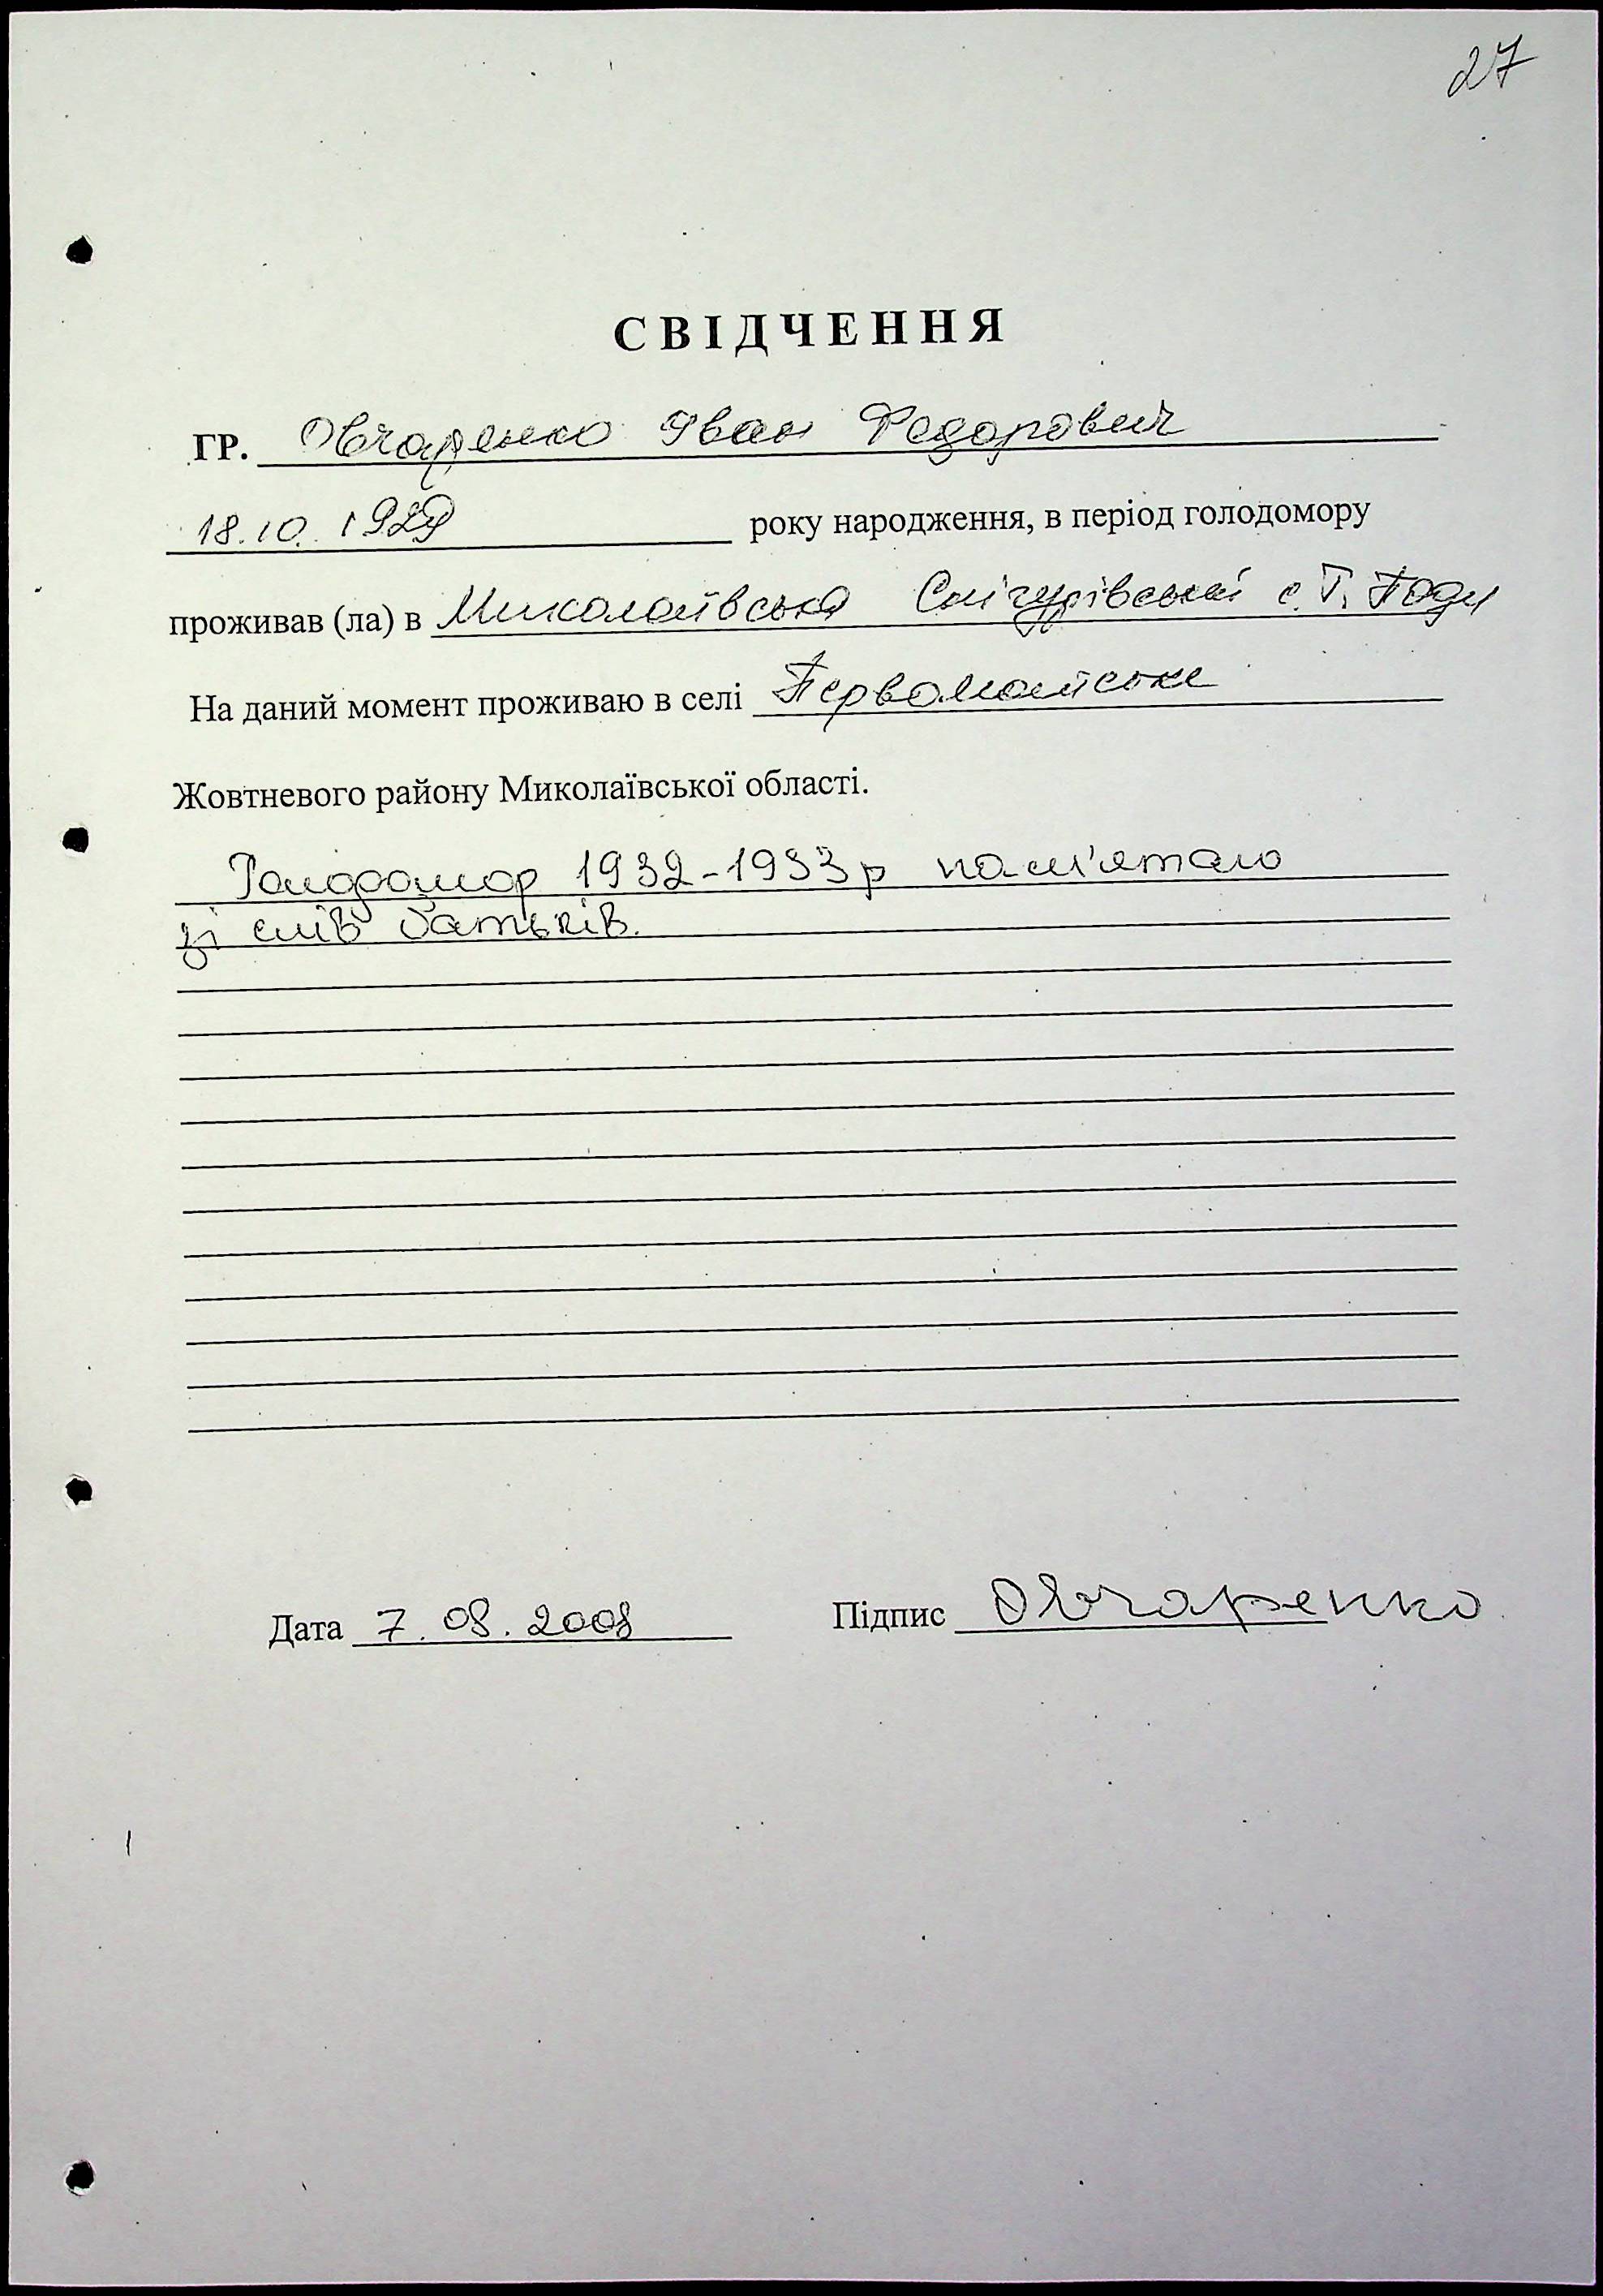 27
СВІДЧЕННЯ
ГР. Овчаренко Іван Федорович
18.10.1929 року народження, в період голодомору
проживав (ла) в Миколаївська Снігурівський с. Т.
На даний момент проживаю в селі Первомайське
Жовтневого району Миколаївської області.
Голодомор 1932-1933р пам'ятаю
зі слів батьків.
Дата 7.08.2008 Підпис Овчаренко